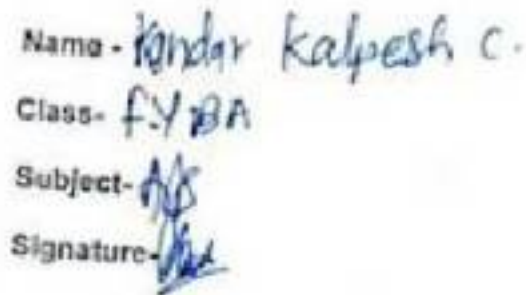 Name - Kandar Kalpesh C.
Class- F.Y BA
Subject-
Signature-